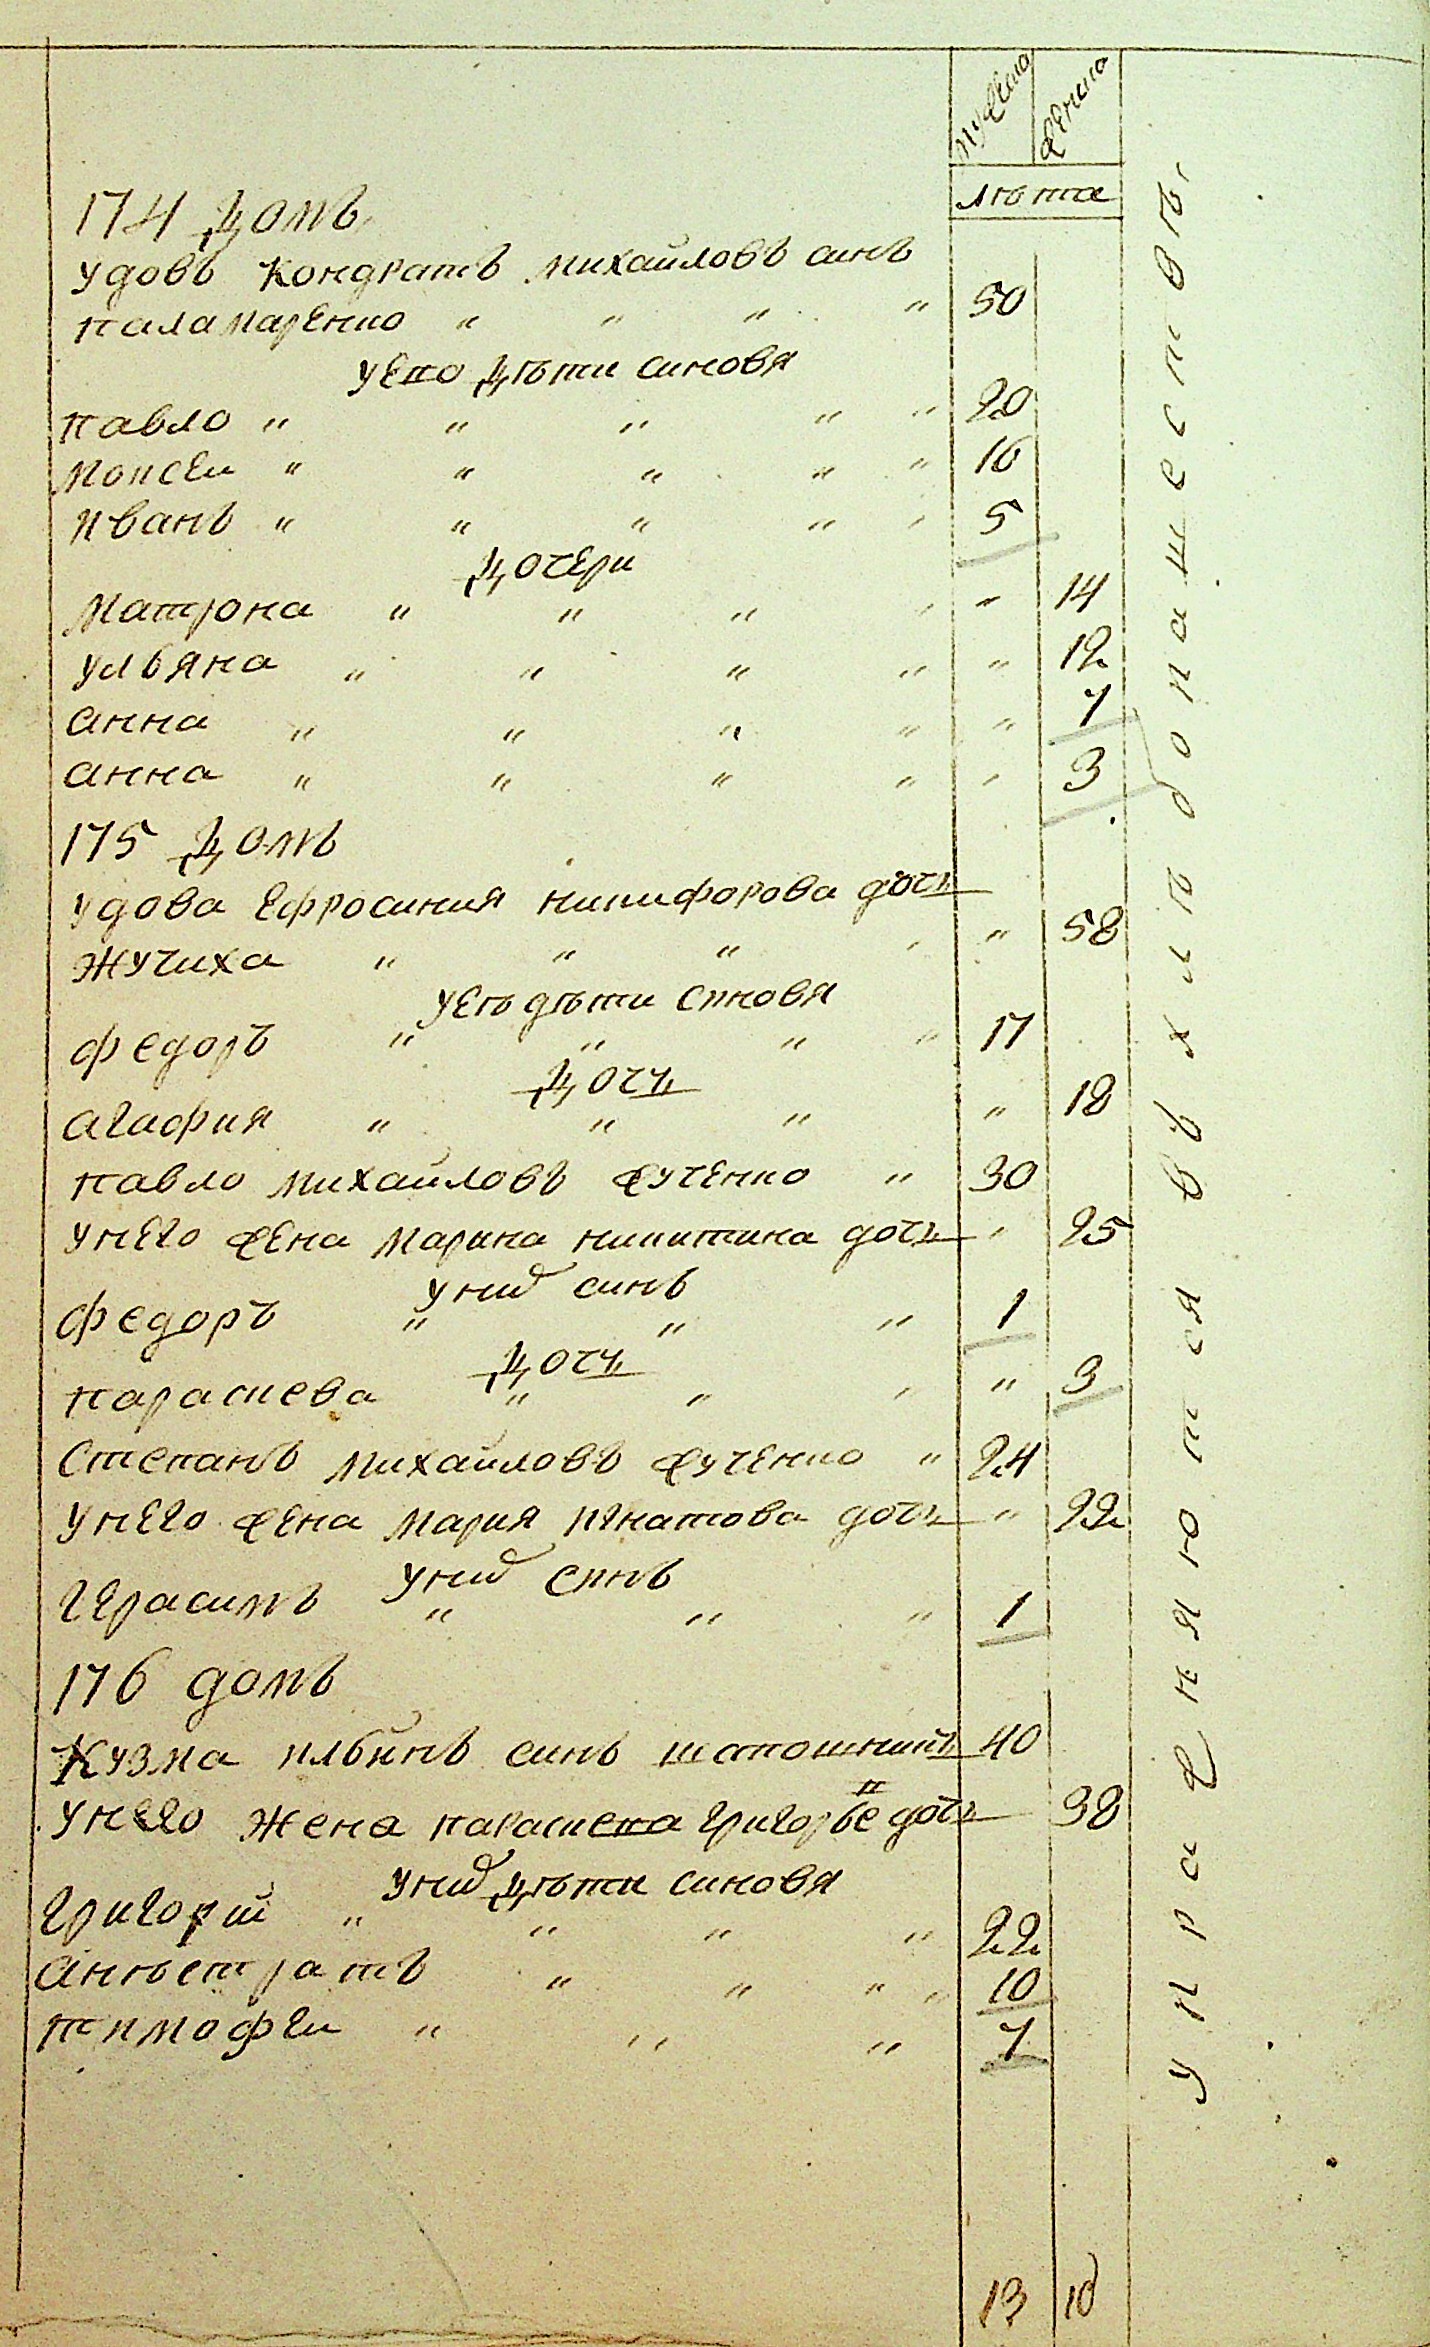 мужеска женска
лѣта
174 Домъ
удовъ Кондратъ Михайловъ синъ
паламаренко " " " " 50
уево Дѣти синовя
павло " " " " " 20
Моисеи " " " " " 16
иванъ " " " " " 5
Дочери
Матрона " " " " " 14
ульяна " " " " " 12
анна " " " " " 7
анна " " " " " 3
175 Домъ
удова Ефросиния никифорова дочь
жучиха " " " " " 58
уегъ дѣти синовя
федоръ " " " " 17
Дочь
агафия " " " " 18
павло михайловъ жученко " 30
унего жена марина никитина дочь " 25
унид синъ
федоръ " " " 1
Дочь
параскева " " " " 3
Степанъ михайловъ жученко " 24
унего жена мария игнатова дочь " 22
унид синъ
герасимъ " " " 1
176 домъ
Кузма ильинъ синъ шапошникъ 40
унего жена параскева григорье дочь 38
унид Дѣти синовя
григорий " " " " 22
" " " " 10
тимофеи " " " 7
13 10
упражняются въ хлѣбопашествѣ,